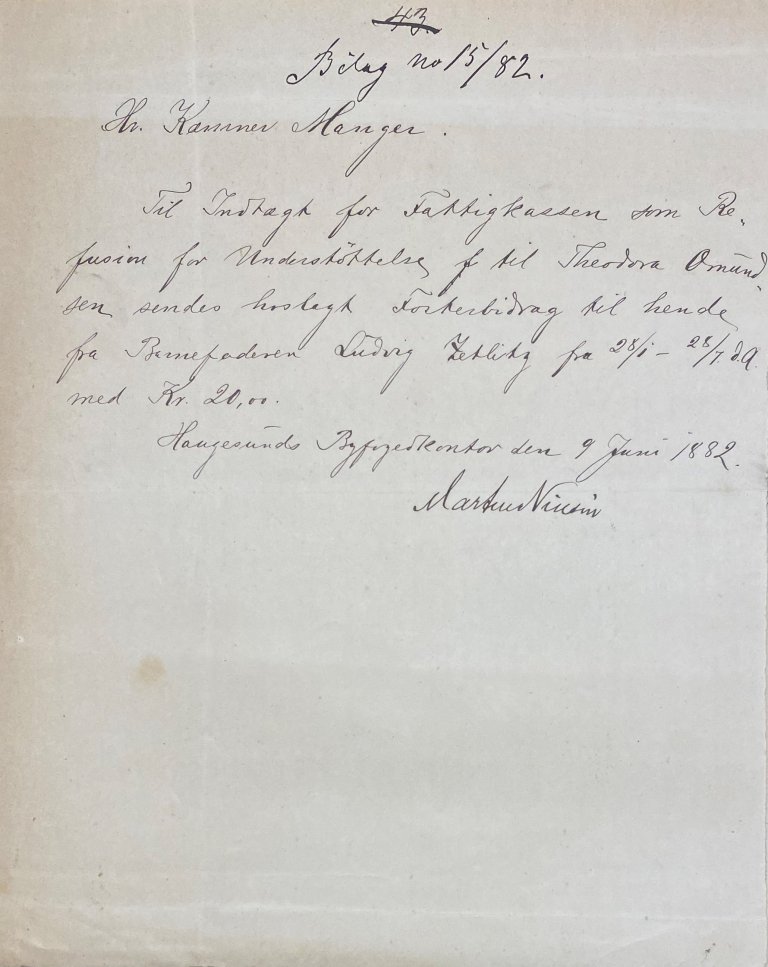 43.
Bilag no 15/82.
Hr. Kæmner Manger.
Til Indtægt for Fattigkassen som Re-
fusion for Understöttelse f til Theodora Omund-
sen sendes hoslagt Fosterbidrag til hende
fra Barnefaderen Ludvig Zetlitz fra 28/1 - 28/7 d.A.
med Kr. 20,00.
Haugesunds Byfogedkontor den 9 Juni 1882.